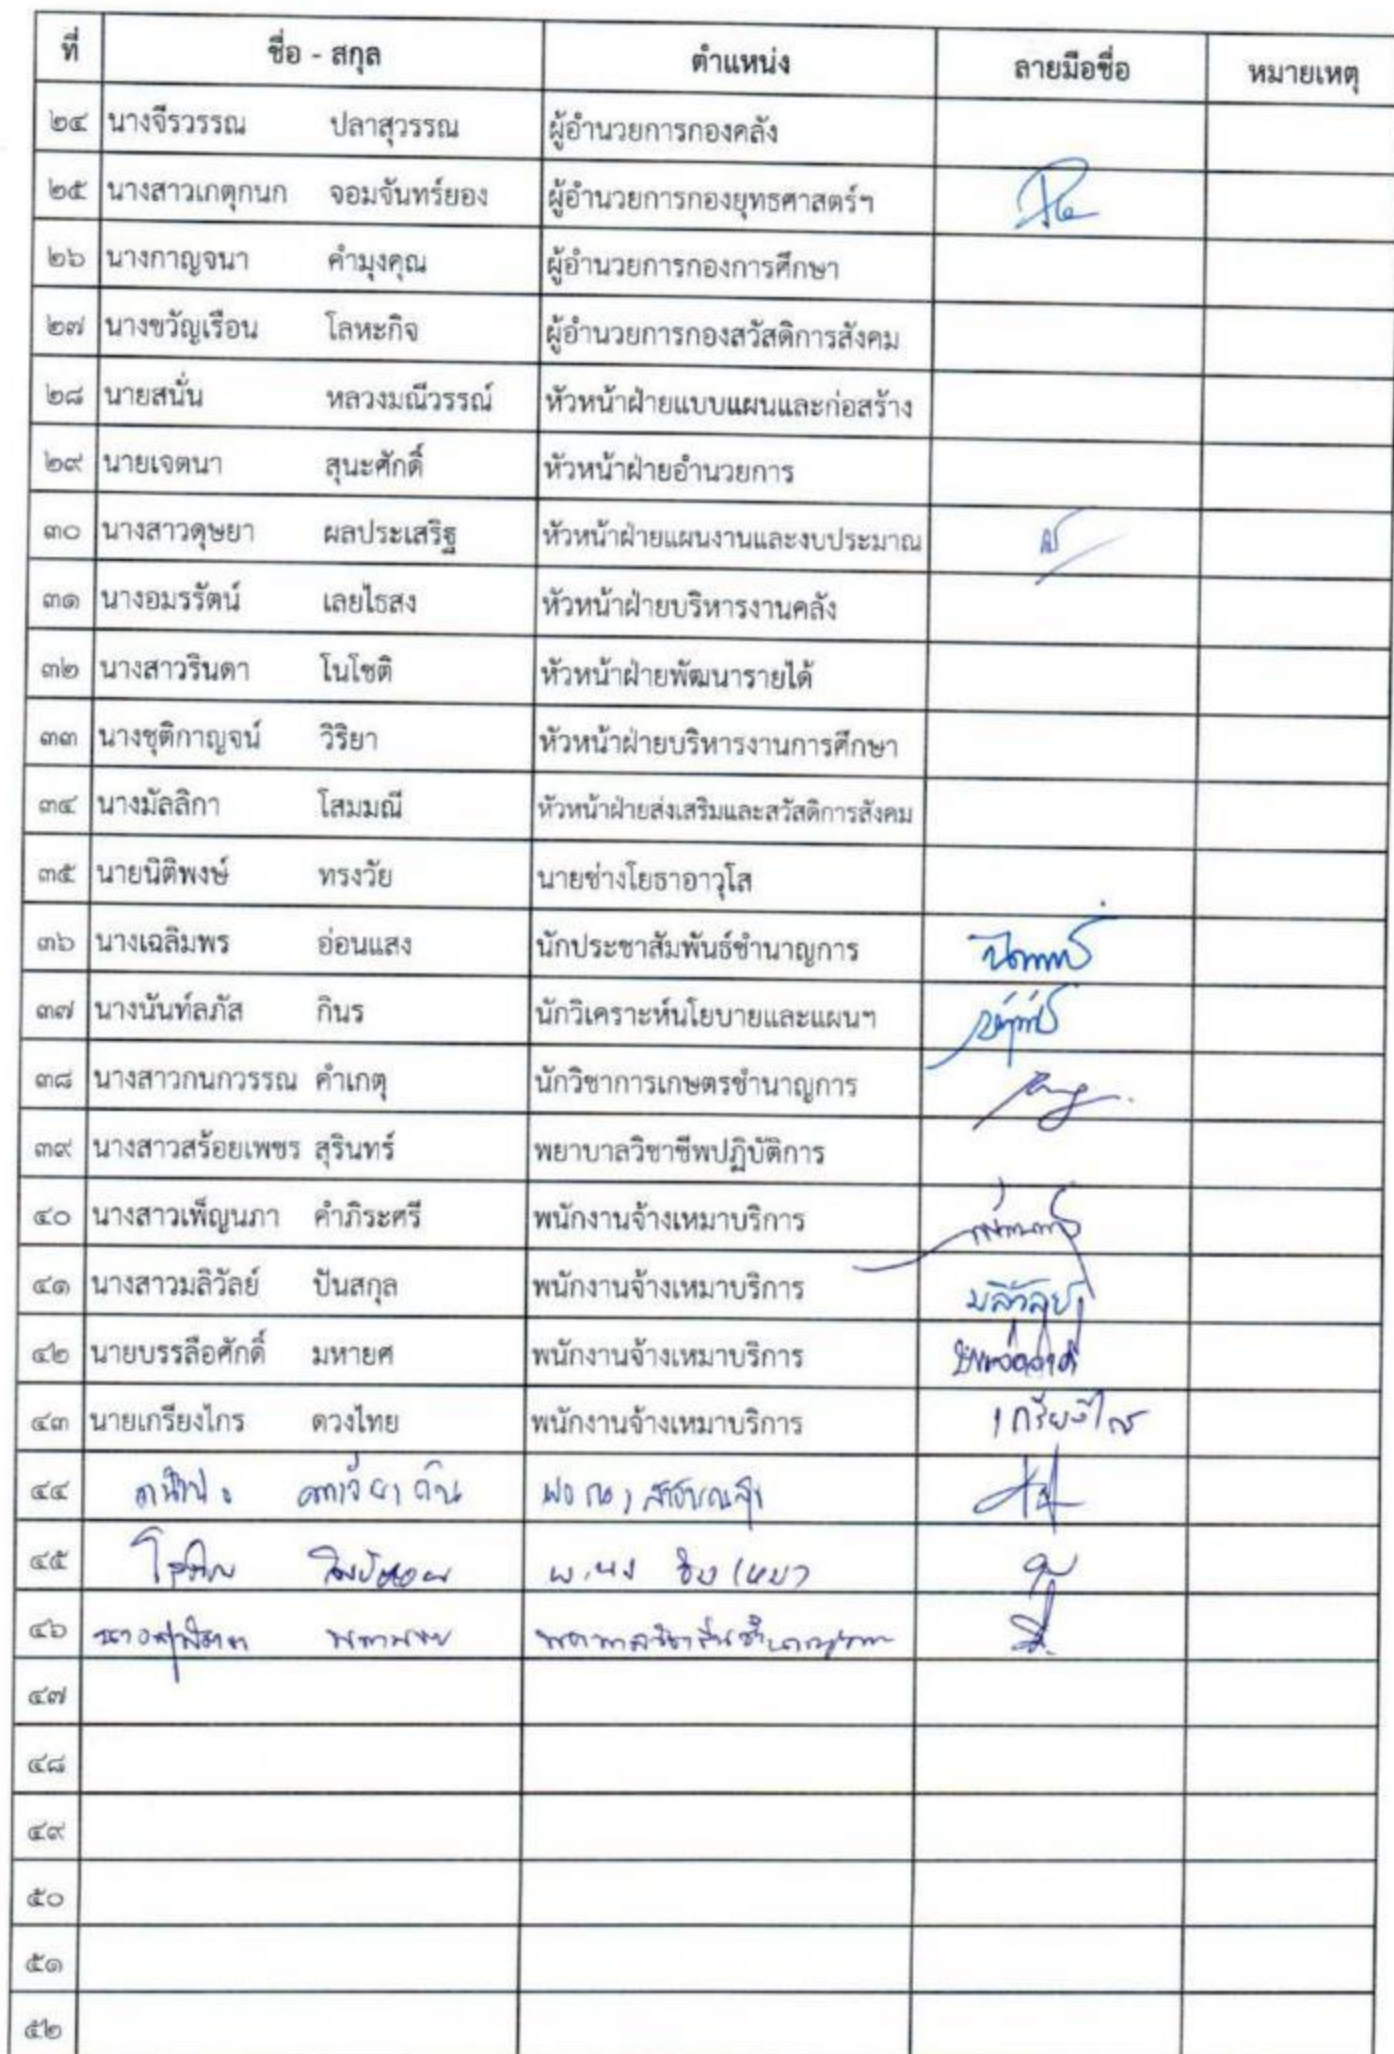 ที่ ชื่อ - สกุล ตำแหน่ง ลายมือชื่อ หมายเหตุ
๒๔ นางจีรวรรณ ปลาสุวรรณ ผู้อำนวยการกองคลัง
๒๕ นางสาวเกตุกนก จอมจันทร์ยอง ผู้อำนวยการกองยุทธศาสตร์ฯ
๒๖ นางกาญจนา คำมุงคุณ ผู้อำนวยการกองการศึกษา
๒๗ นางขวัญเรือน โลหะกิจ ผู้อำนวยการกองสวัสดิการสังคม
๒๘ นายสนั่น หลวงมณีวรรณ์ หัวหน้าฝ่ายแบบแผนและก่อสร้าง
๒๙ นายเจตนา สุนะศักดิ์ หัวหน้าฝ่ายอำนวยการ
๓๐ นางสาวดุษยา ผลประเสริฐ หัวหน้าฝ่ายแผนงานและงบประมาณ
๓๑ นางอมรรัตน์ เลยไธสง หัวหน้าฝ่ายบริหารงานคลัง
๓๒ นางสาวรินดา โนโชติ หัวหน้าฝ่ายพัฒนารายได้
๓๓ นางชุติกาญจน์ วิริยา หัวหน้าฝ่ายบริหารงานการศึกษา
๓๔ นางมัลลิกา โสมมณี หัวหน้าฝ่ายส่งเสริมและสวัสดิการสังคม
๓๕ นายนิติพงษ์ ทรงวัย นายช่างโยธาอาวุโส
๓๖ นางเฉลิมพร อ่อนแสง นักประชาสัมพันธ์ชำนาญการ
๓๗ นางนันท์ลภัส กินร นักวิเคราะห์นโยบายและแผนฯ
๓๘ นางสาวกนกวรรณ คำเกตุ นักวิชาการเกษตรชำนาญการ
๓๙ นางสาวสร้อยเพชร สุรินทร์ พยาบาลวิชาชีพปฏิบัติการ
๔๐ นางสาวเพ็ญนภา คำภิระศรี พนักงานจ้างเหมาบริการ
๔๑ นางสาวมลิวัลย์ ปันสกุล พนักงานจ้างเหมาบริการ มลิวัลย์
๔๒ นายบรรลือศักดิ์ มหายศ พนักงานจ้างเหมาบริการ
๔๓ นายเกรียงไกร ดวงไทย พนักงานจ้างเหมาบริการ เกรียงไกร
๔๔
๔๕
๔๖
๔๗
๔๘
๔๙
๕๐
๕๑
๕๒